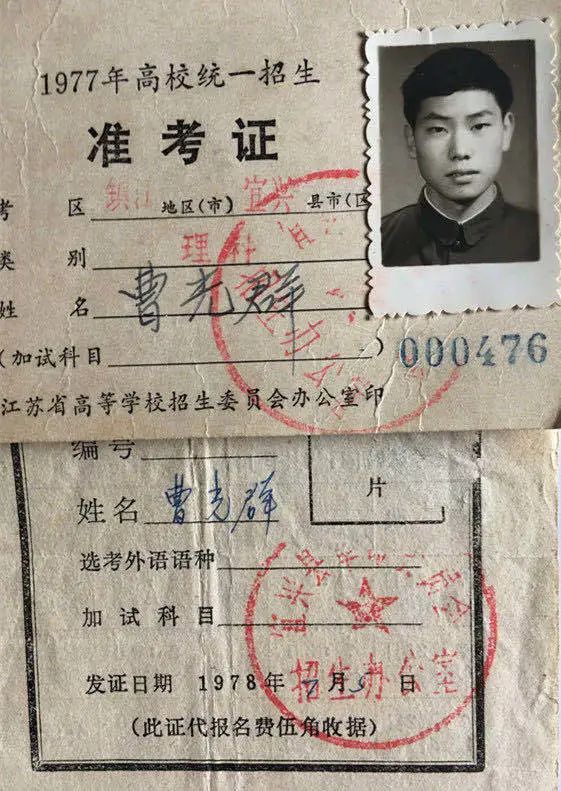 1977年高校统一招生
准考证
考区 镇江 地区(市) 宜兴 县市(区
类别 理科
姓名 曹光群
(加试科目 )
000476
江苏省高等学校招生委员会办公室印
编号
片
姓名 曹光群
选考外语语种
加试科目
招生办公室
发证日期 1978年7月 日
(此证代报名费伍角收据)